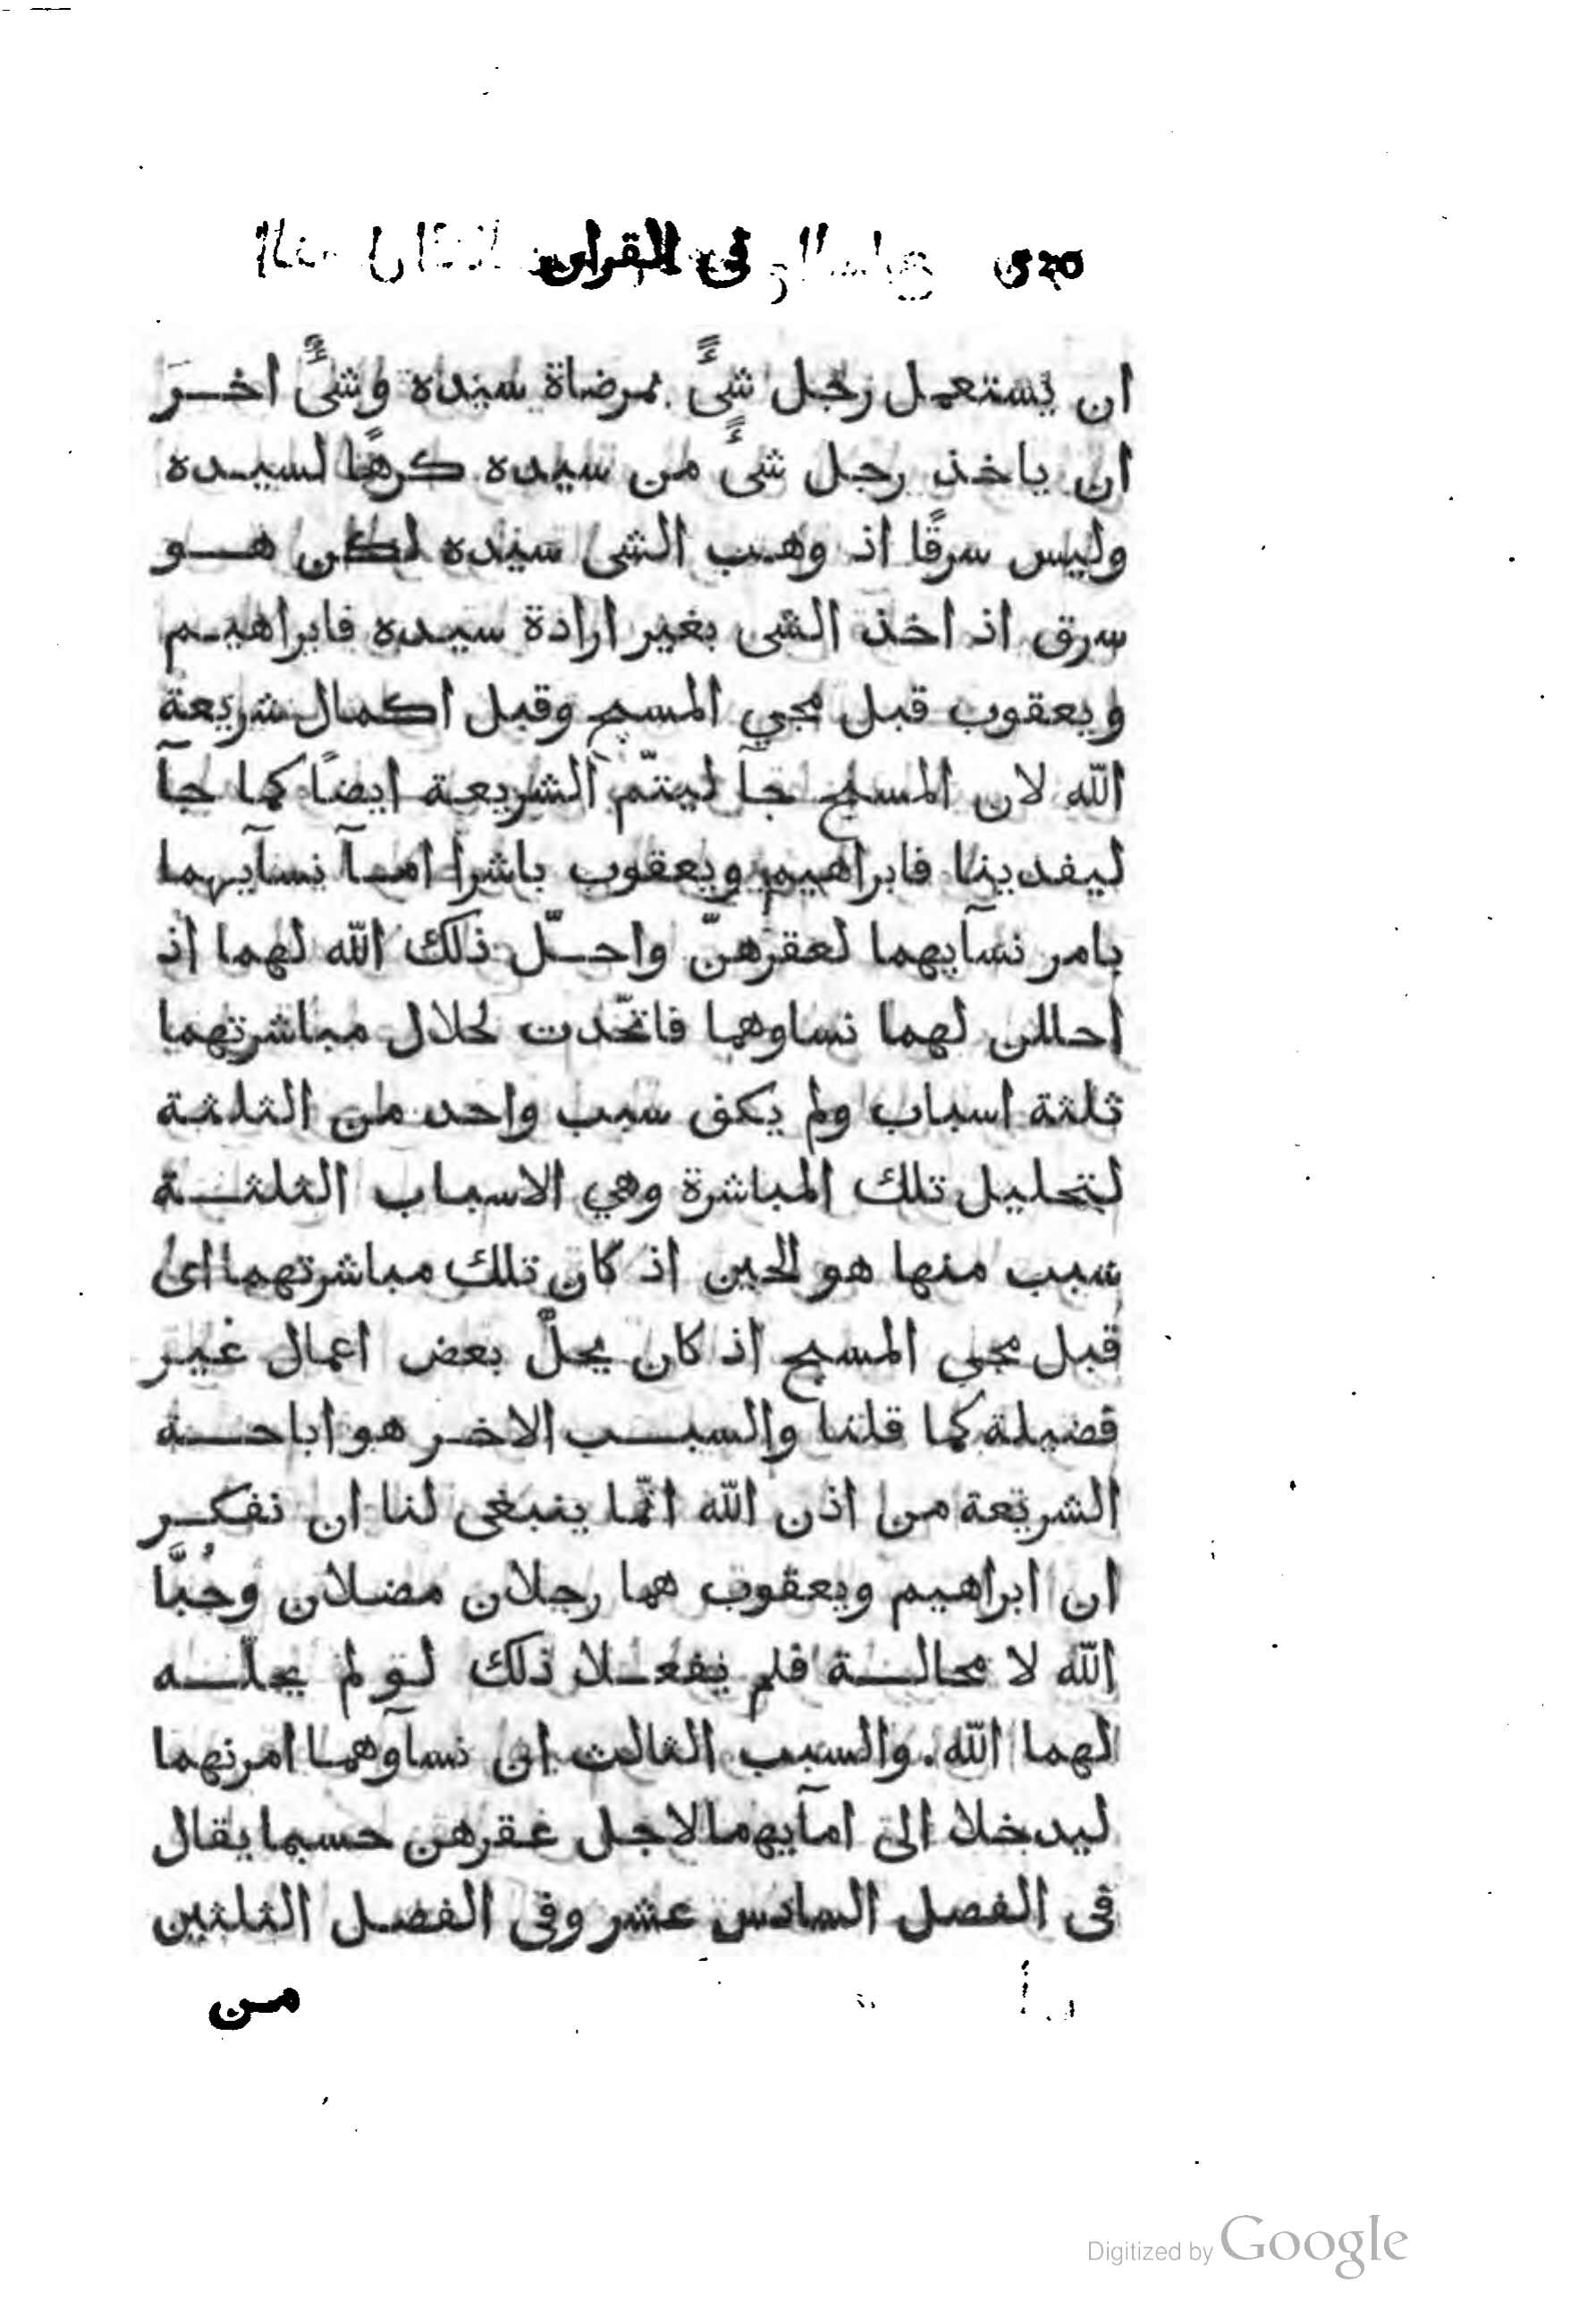 520 في القران
ان يستعمل رجل شيًّ بمرضاة سيده وشيًّ اخرَ
ان ياخذ رجل شيًّ من سيده كرهًا لسيده
وليس سرقًا اذ وهب الشى سيده لكن هو
سرق اذ اخذ الشى بغير ارادة سيده فابراهيم
ويعقوب قبل مجي المسيح وقبل اكمال شريعة
اللّه لان المسيح جآ ليتمّم الشريعة ايضًا كما جآ
ليفدينا فابراهيم ويعقوب باشرا امآ نسآيهما
بامر نسآيهما لعقرهنّ واحلّ ذلك اللّه لهما اذ
احللن لهما نساوهما فاتّحدت لحلال مباشرتهما
ثلثة اسباب ولم يكف سبب واحد من الثلثة
لتحليل تلك المباشرة وهي الاسباب الثلثة
سبب منها هو الحين اذ كان تلك مباشرتهما اى
قبل مجى المسيح اذ كان يحلّ بعض اعمال غير
فضيلة كما قلنا والسبب الاخر هو اباحة
الشريعة من اذن اللّه انّما ينبغى لنا ان نفكر
ان ابراهيم ويعقوب هما رجلان مضلان وحُبَّا
اللّه لا محالة فلم يفعلا ذلك لو لم يحلّه
لهما اللّه. والسبب الثالث ان نسآوهما امرتهما
ليدخلا الى امآيهما لاجل عقرهن حسبما يقال
فى الفصل السادس عشر وفى الفصل الثلثين
من
Digitized by Google